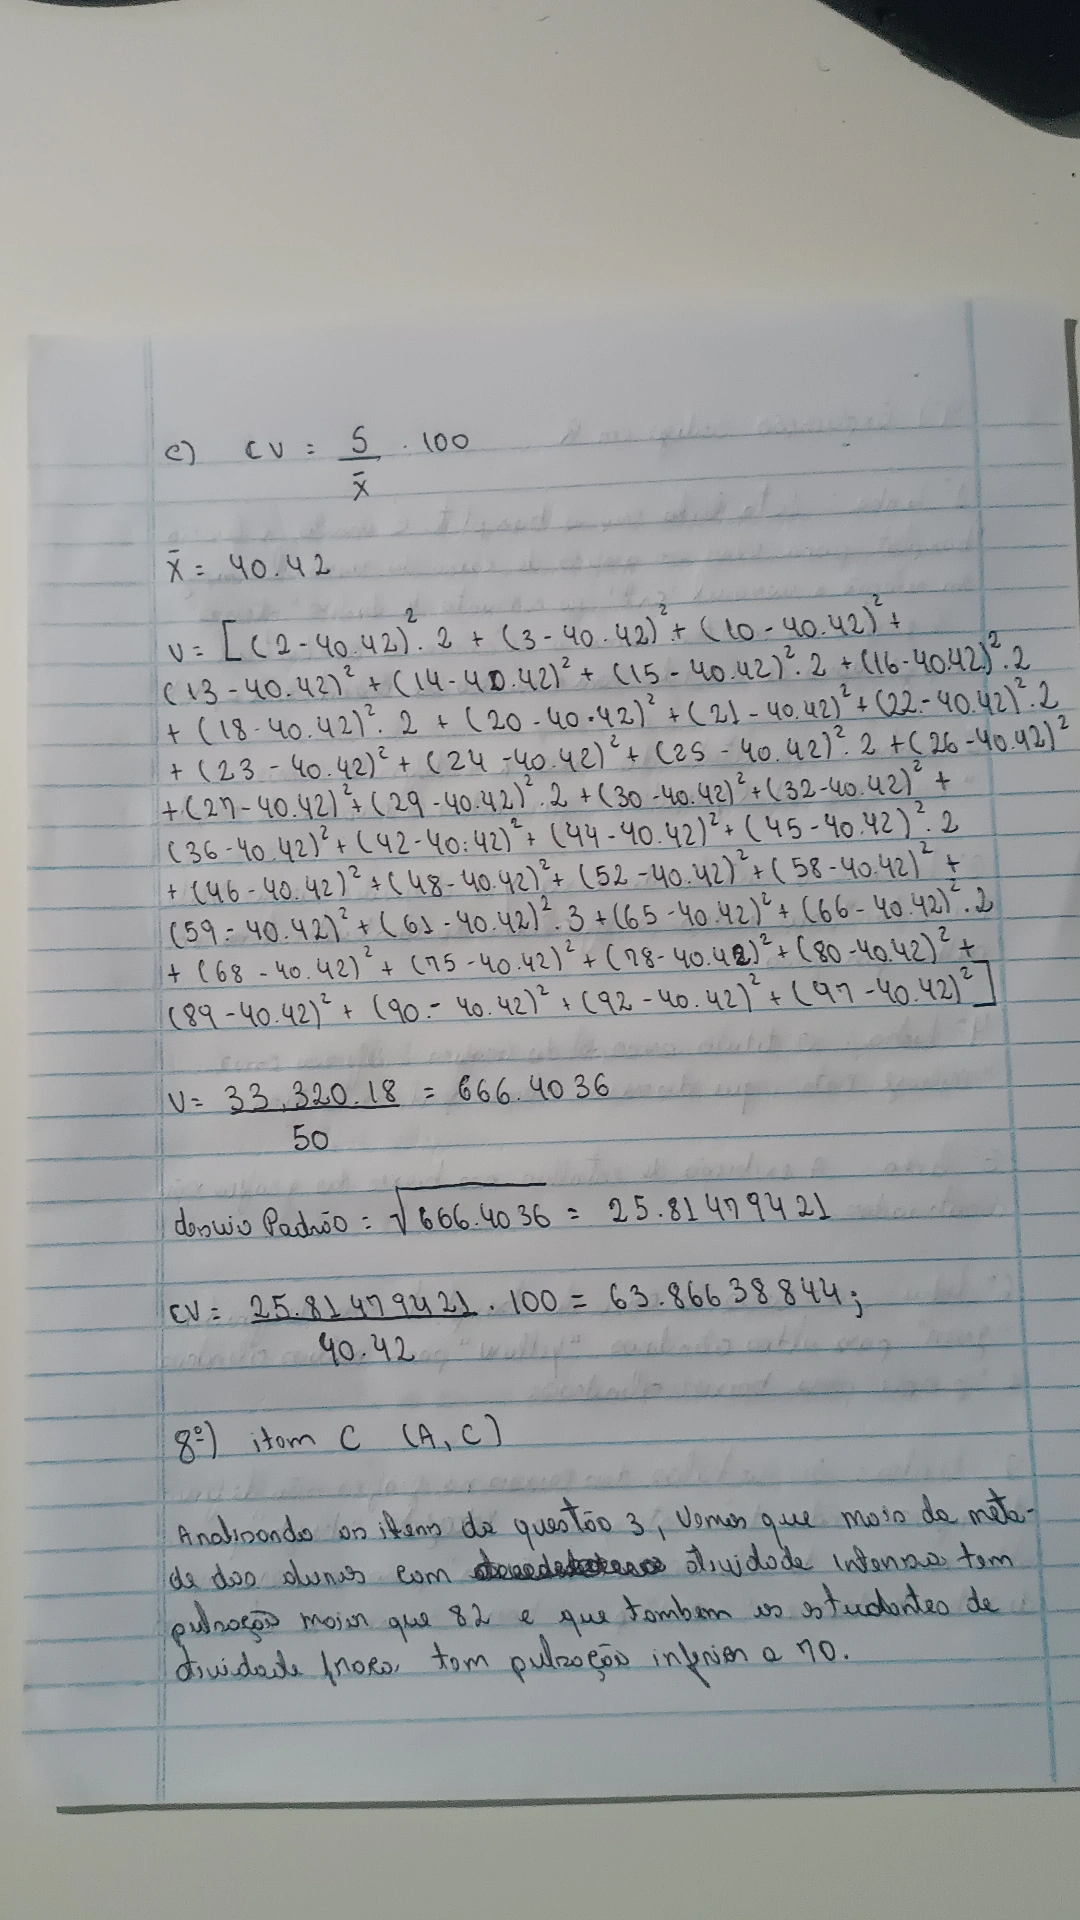 c) CV = S/x̄ . 100
x̄ = 40.42
V = [(2-40.42)². 2 + (3-40.42)² + (10-40.42)² +
(13-40.42)² + (14-40.42)² + (15-40.42)². 2 + (16-40.42)². 2
+ (18-40.42)². 2 + (20-40.42)² + (21-40.42)² + (22-40.42)². 2
+ (23-40.42)² + (24-40.42)² + (25-40.42)². 2 + (26-40.42)²
+ (27-40.42)² + (29-40.42)². 2 + (30-40.42)² + (32-40.42)² +
(36-40.42)² + (42-40.42)² + (44-40.42)² + (45-40.42)². 2
+ (46-40.42)² + (48-40.42)² + (52-40.42)² + (58-40.42)² +
(59-40.42)² + (61-40.42)². 3 + (65-40.42)² + (66-40.42)². 2
+ (68-40.42)² + (75-40.42)² + (78-40.42)² + (80-40.42)² +
(89-40.42)² + (90-40.42)² + (92-40.42)² + (97-40.42)²]
V = 33,320.18/50 = 666.4036
desvio Padrão = √666.4036 = 25.81479421
CV = 25.81479421/40.42 . 100 = 63.86638844;
8º) item C (A, C)
Analisando os itens da questão 3, vemos que mais da meta-
de dos alunos com atividade intensa tem
pulsação maior que 82 e que tambem os estudantes de
atividade fraca tem pulsação inferior a 70.